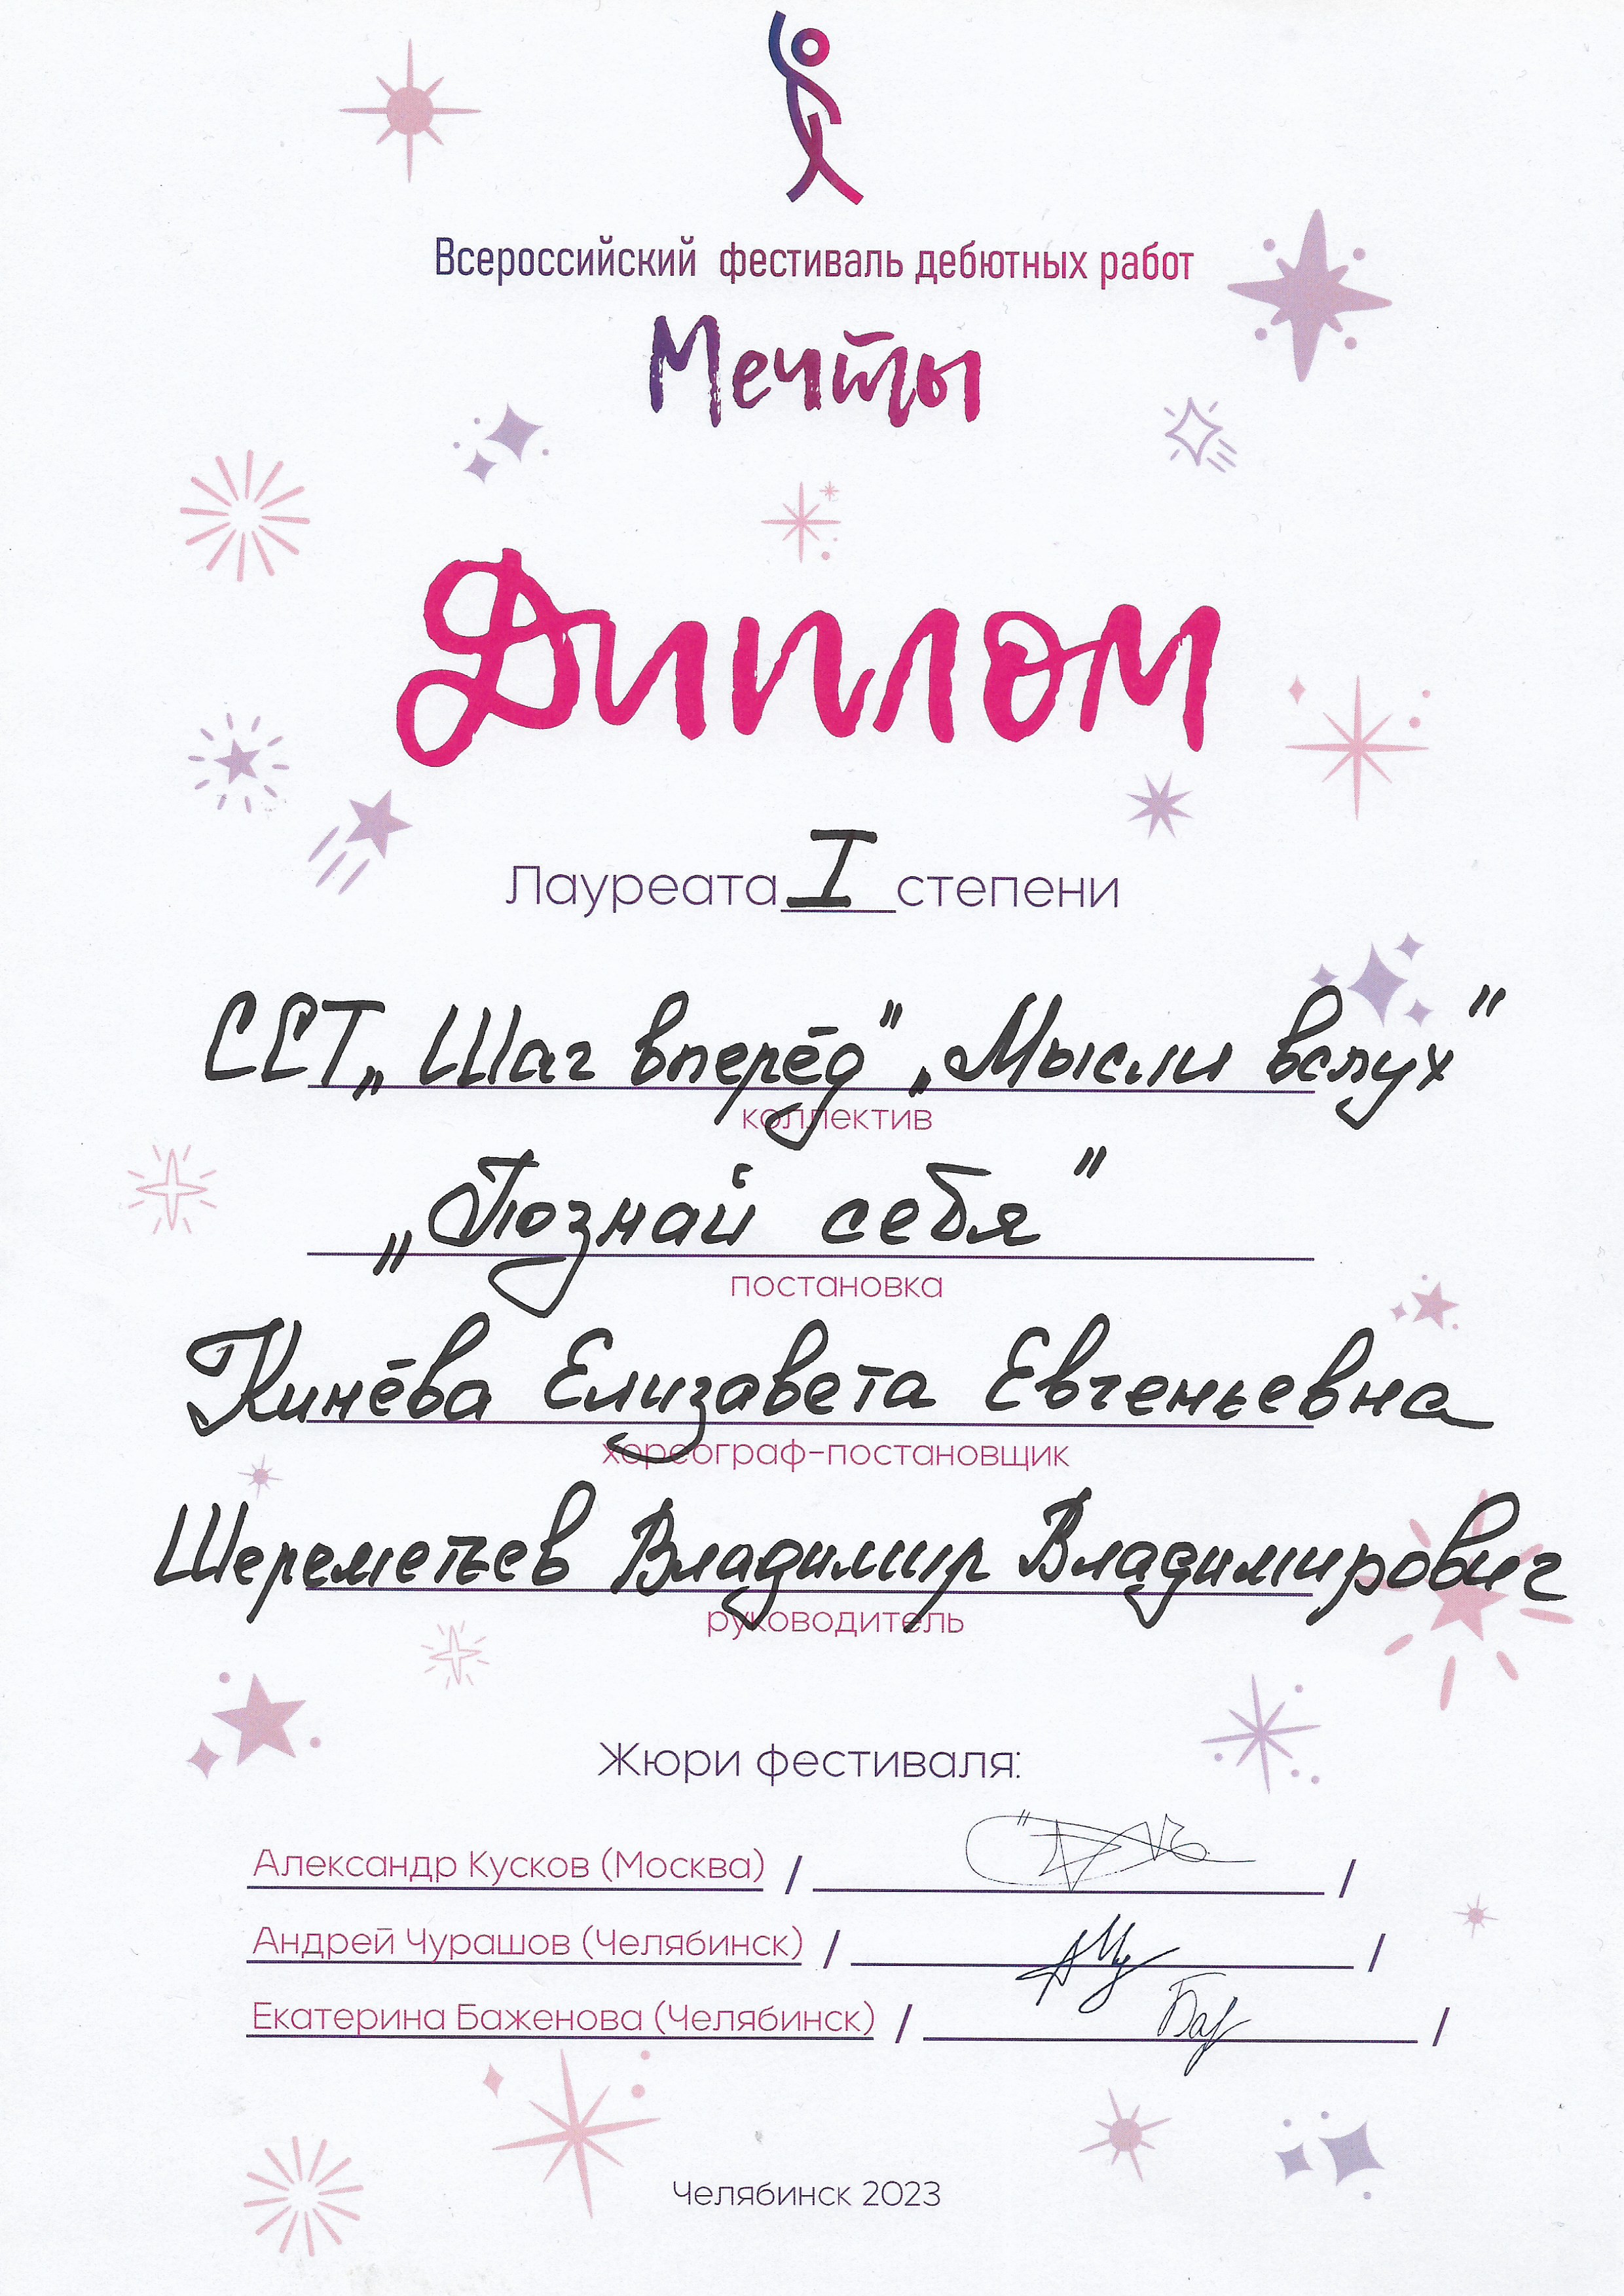 Всероссийский фестиваль дебютных работ
Мечты
Диплом
Лауреата I степени
ССТ „Шаг вперёд" „Мысли вслух"
коллектив
„Познай себя"
постановка
Кинёва Елизавета Евгеньевна
хореограф-постановщик
Шереметьев Владимир Владимирович
руководитель
Жюри фестиваля:
Александр Кусков (Москва) / /
Андрей Чурашов (Челябинск) / /
Екатерина Баженова (Челябинск) / /
Челябинск 2023